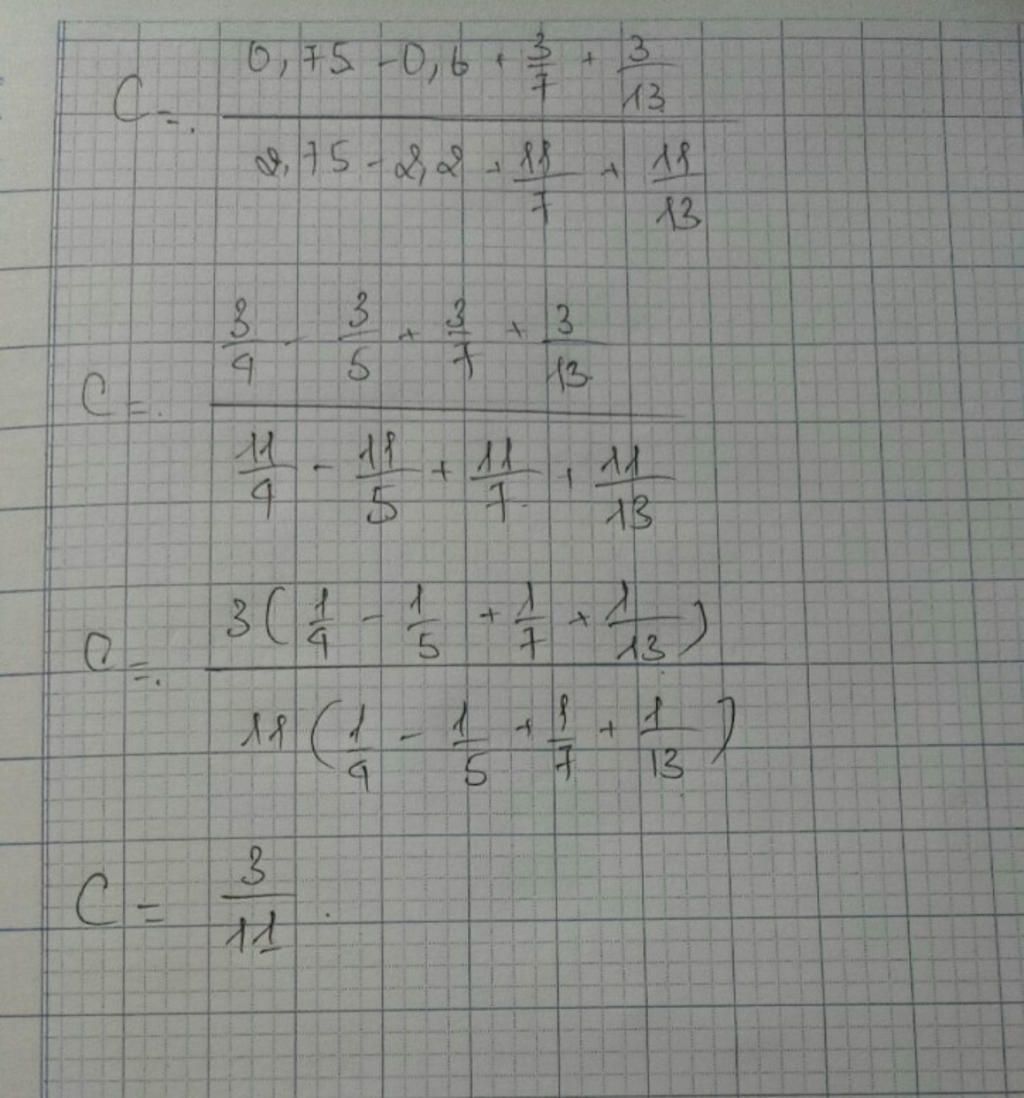 C = (0,75 - 0,6 + 3/7 + 3/13) / (2,75 - 2,2 + 11/7 + 11/13)
C = (3/4 - 3/5 + 3/7 + 3/13) / (11/4 - 11/5 + 11/7 + 11/13)
C = 3(1/4 - 1/5 + 1/7 + 1/13) / 11(1/4 - 1/5 + 1/7 + 1/13)
C = 3/11.